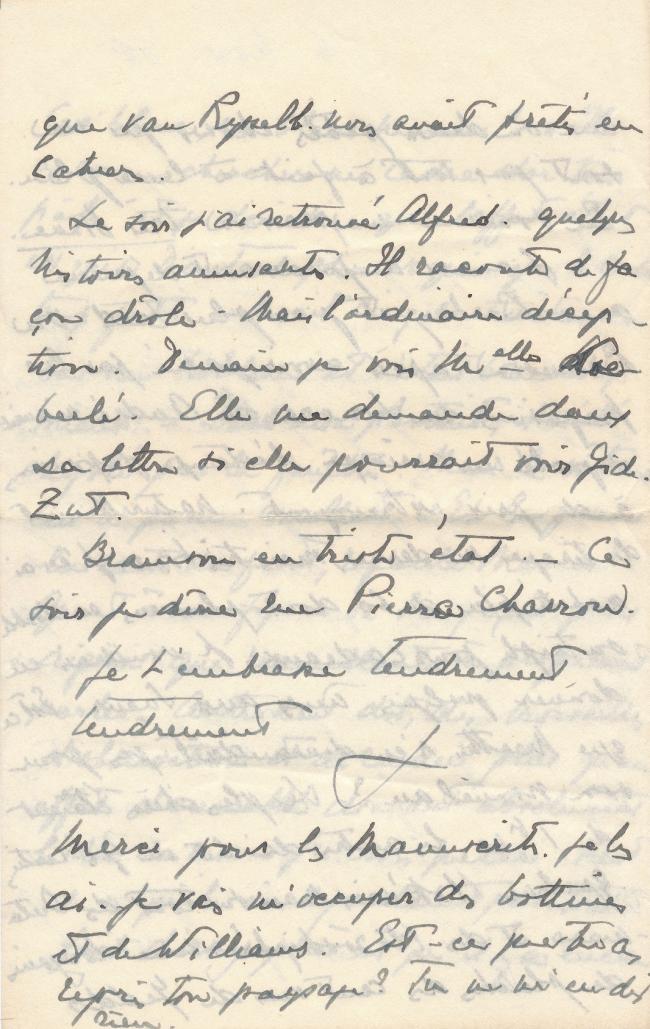 que van Rysselb. nous avait prêtés en
Cahier.
Le soir j'ai retrouvé Alfred. quelques
histoires amusantes. Il raconte de fa
çon drôle - Mais l'ordinaire décep-
tion. Demain je vois Melle
Elle me demande dans
sa lettre si elle pourrait voir Gide.
Zut.
en triste état. - Ce
soir je dîne rue Pierre Charron.
Je t'embrasse tendrement,
tendrement
Merci pour les Manuscrits. je les
ai. je vais m'occuper des bottines
et de Williams. Est-ce que tu as
repris ton paysage? Tu ne m'en dis
rien.